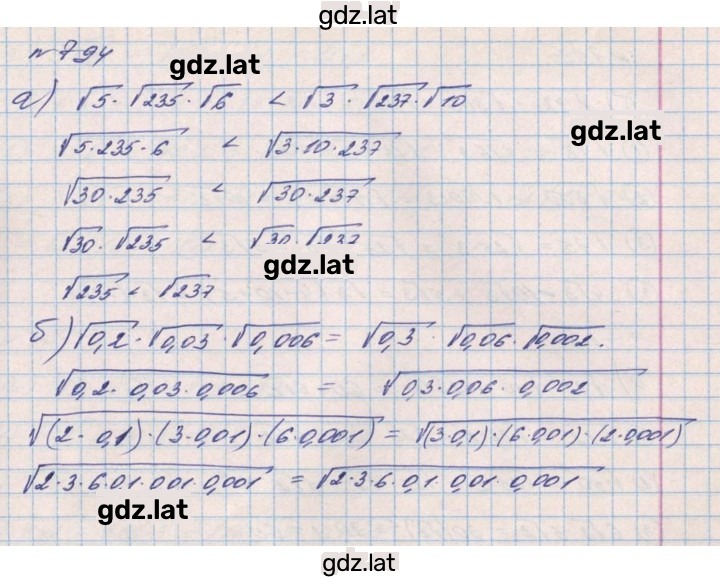 gdz.lat
№794
gdz.lat
а) √5 · √235 · √6 < √3 · √237 · √10
gdz.lat
√5·235·6 < √3·10·237
√30·235 < √30·237
√30 · √235 < √30 · √237
gdz.lat
√235 < √237
б) √0,2 · √0,03 · √0,006 = √0,3 · √0,06 · √0,002.
√0,2 · 0,03 · 0,006 = √0,3·0,06 · 0,002
√(2 · 0,1)·(3·0,01)·(6·0,001) = √(3·0,1)·(6·0,01)·(2·0,001)
√2·3·6·0.1·001·0,001 = √2·3·6·0,1·0,01·0,001
gdz.lat
gdz.lat